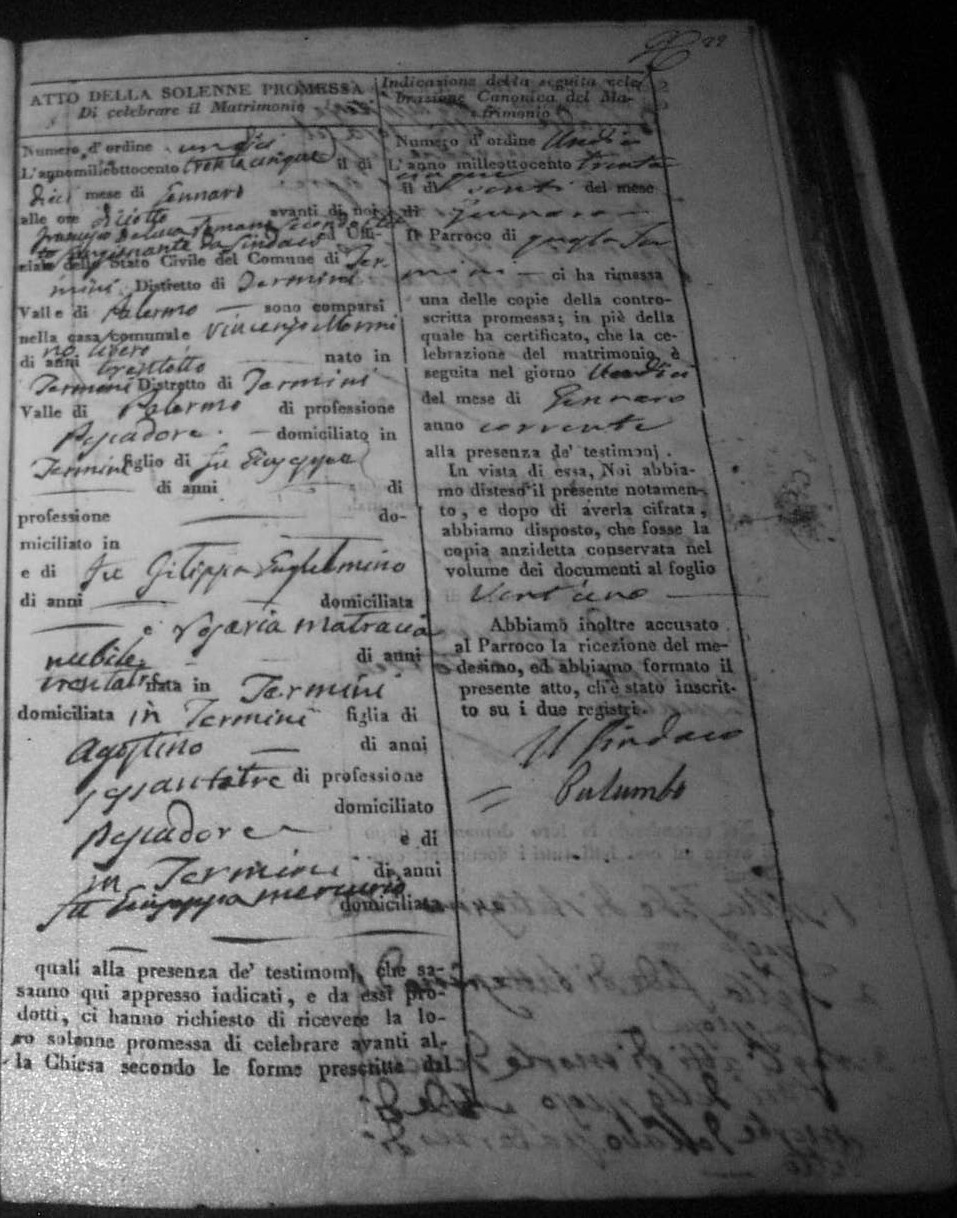 22
ATTO DELLA SOLENNE PROMESSA
Di celebrare il Matrimonio
Numero d'ordine undici
L'anno milleottocento trentacinque il di
dieci mese di Gennaro
alle ore diciotto avanti di noi
Francesco Deluca Romano Secondo Elet
to funzionante da Sindaco ed Uffi-
ciale dello Stato Civile del Comune di Ter
mini Distretto di Termini
Valle di Palermo sono comparsi
nella casa comunale Vincenzo Mormi
no libero
di anni trentotto nato in
Termini Distretto di Termini
Valle di Palermo di professione
Pescadore domiciliato in
Termini figlio di fu Giuseppe
di anni di
professione do-
miciliato in
e di fu Filippa Guglielmino
di anni domiciliata
e Rosaria Matracia
nubile di anni
trentatre nata in Termini
domiciliata in Termini figlia di
Agostino di anni
sessantatre di professione
domiciliato
Pescadore e di
in Termini di anni
fu Giuseppa Mercurio domiciliata
quali alla presenza de' testimonj, che sa-
sanno qui appresso indicati, e da essi pro-
dotti, ci hanno richiesto di ricevere la lo-
ro solenne promessa di celebrare avanti al-
la Chiesa secondo le forme prescritte dal
Indicazione della seguita cele-
brazione Canonica del Ma-
trimonio
Numero d'ordine Undici
L'anno milleottocento trenta
cinque
il di venti del mese
di Gennaro
Il Parroco di questa Ter
mini ci ha rimessa
una delle copie della contro-
scritta promessa; in piè della
quale ha certificato, che la ce-
lebrazione del matrimonio è
seguita nel giorno Undici
del mese di Gennaro
anno corrente
alla presenza de' testimonj.
In vista di essa, Noi abbia-
mo disteso il presente notamen-
to, e dopo di averla cifrata,
abbiamo disposto, che fosse la
copia anzidetta conservata nel
volume dei documenti al foglio
Ventuno
Abbiamo inoltre accusato
al Parroco la ricezione del me-
desimo, ed abbiamo formato il
presente atto, ch'è stato inscrit-
to su i due registri.
Il Sindaco
Palumbo